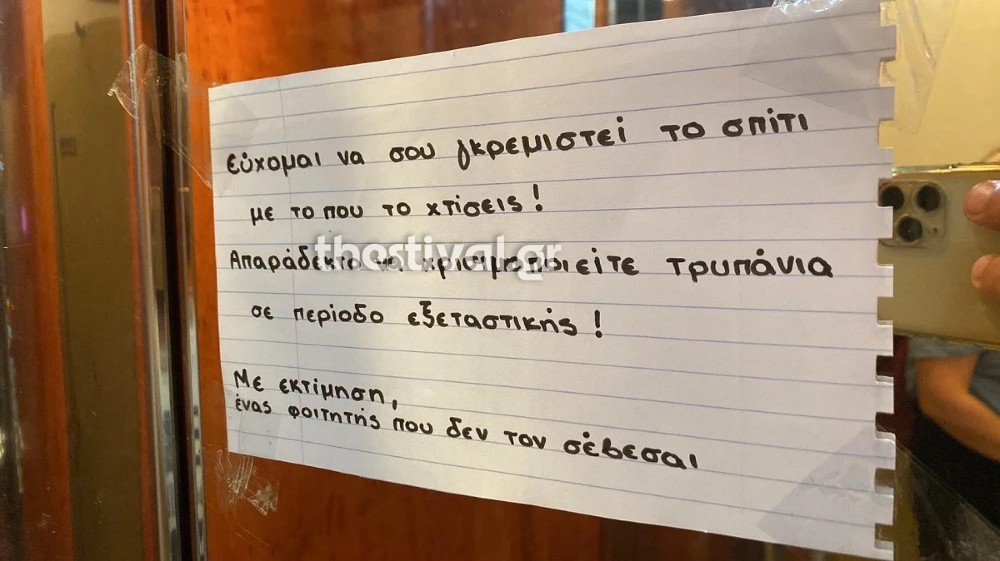 Εύχομαι να σου γκρεμιστεί το σπίτι
με το που το χτίσεις!
thestival.gr
Απαράδεκτο να χρισιμοποιείτε τρυπάνια
σε περίοδο εξεταστικής!
Με εκτίμηση,
ένας φοιτητής που δεν τον σέβεσαι